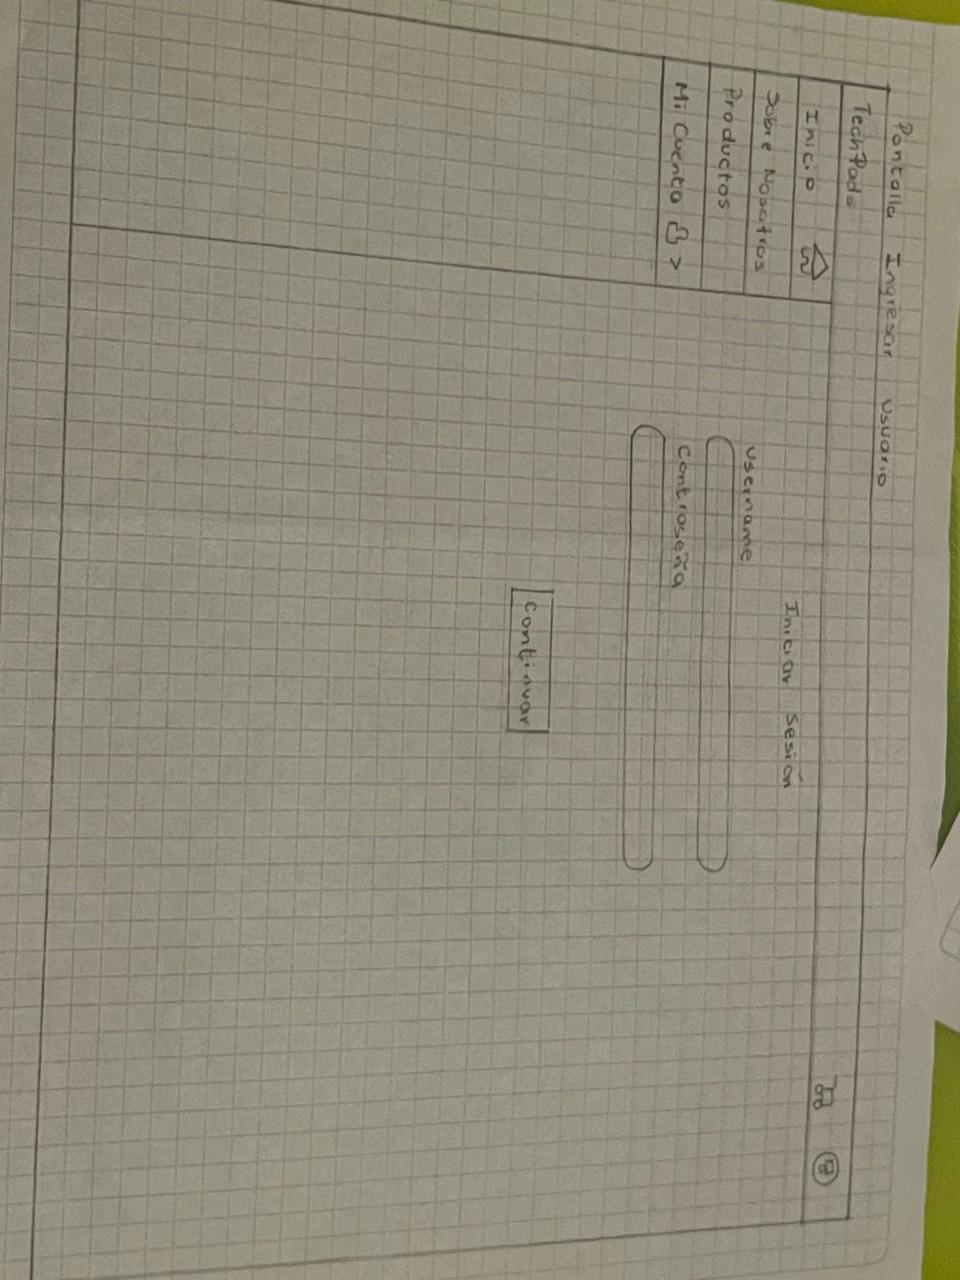 Pantalla Ingresar usuario
TechPads
Inicio
Sobre Nosotros
Productos
Mi Cuenta >
Iniciar sesión
username
Contraseña
Continuar